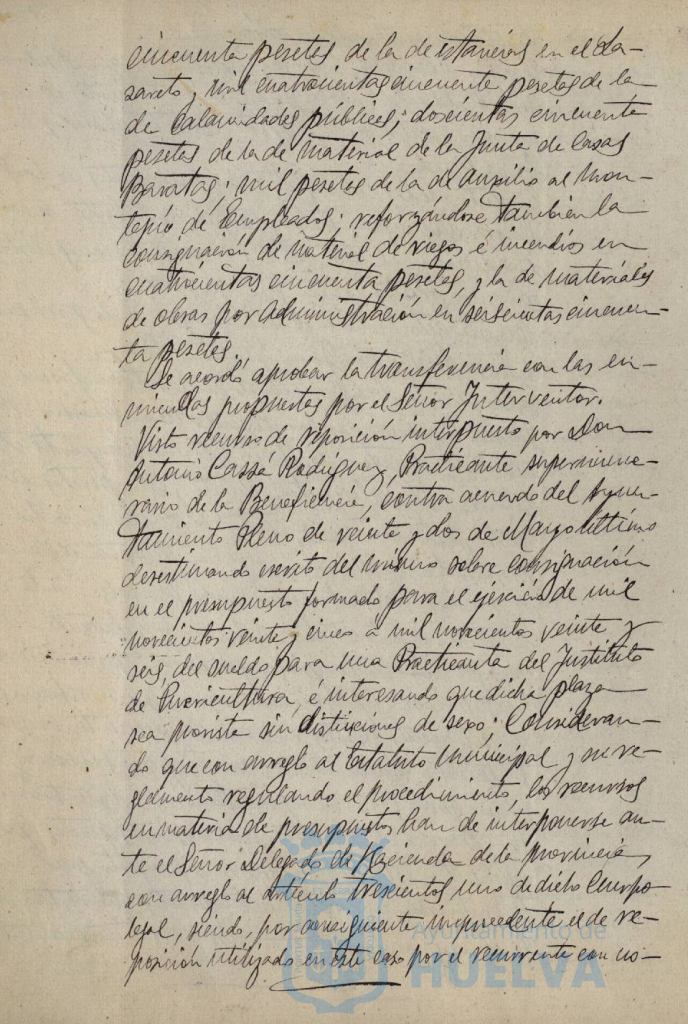 cincuenta pesetas de la de estancias en el La-
zareto, mil cuatrocientas cincuenta pesetas de la
de Calamidades públicas; doscientas cincuenta
pesetas de la de material de la Junta de Casas
Baratas; mil pesetas de la de auxilio al Mon-
tepío de Empleados; reforzándose también la
consignación de material de riegos é incendios en
cuatrocientas cincuenta pesetas, y la de materiales
de obras por administración en seiscientas cincuen-
ta pesetas.
Se acordó aprobar la transferencia con las en-
miendas propuestas por el Señor Interventor.
Visto recurso de reposición interpuesto por Don
Antonio Cassá Rodríguez, Practicante supernume-
rario de la Beneficencia, contra acuerdo del Ayun-
tamiento Pleno de veinte y dos de Marzo último
desestimando escrito del mismo sobre consignación
en el presupuesto formado para el ejercicio de mil
novecientos veinte y cinco a mil novecientos veinte y
seis, del sueldo para una Practicanta del Instituto
de Puericultura, é interesando que dicha plaza
sea provista sin distinciones de sexo; Consideran-
do que con arreglo al Estatuto Municipal y su re-
glamento regulando el procedimiento, los recursos
en materia de presupuestos han de interponerse an-
te el Señor Delegado de Hacienda de la provincia,
con arreglo al artículo trescientos uno de dicho Cuerpo
legal, siendo, por consiguiente improcedente el de re-
posición utilizado en este caso por el recurrente con no-
Ayuntamiento de
HUELVA